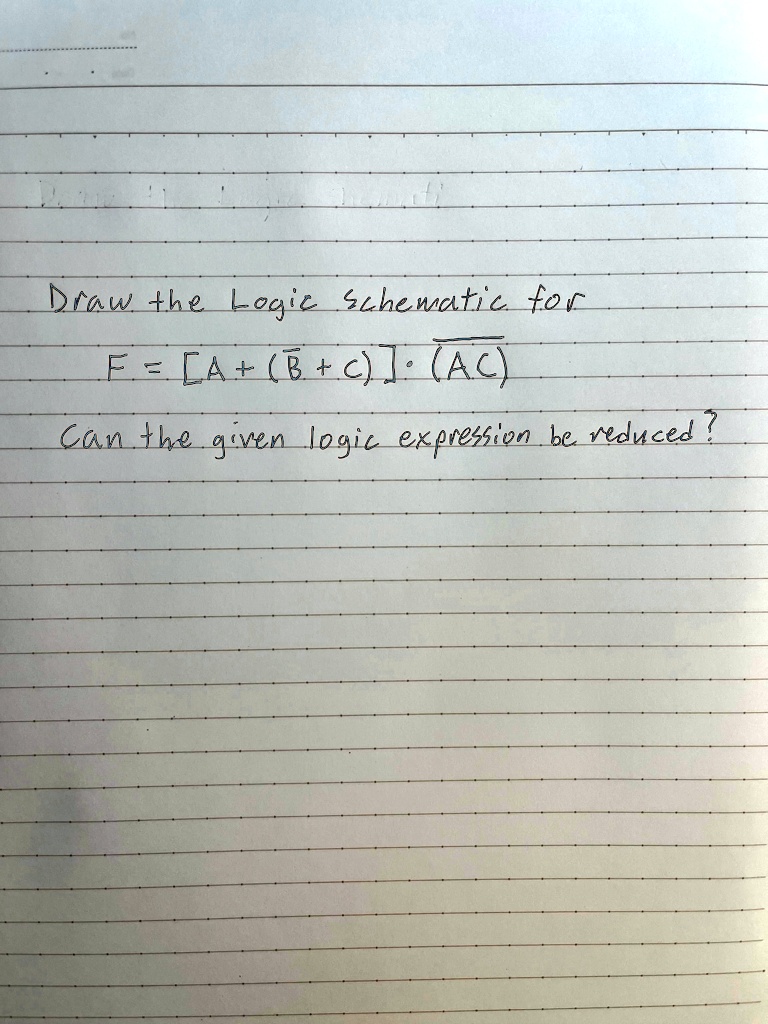 Draw the Logic Schematic for
F = [A + (B̅ + C)]· \overline{(AC)}
Can the given logic expression be reduced?